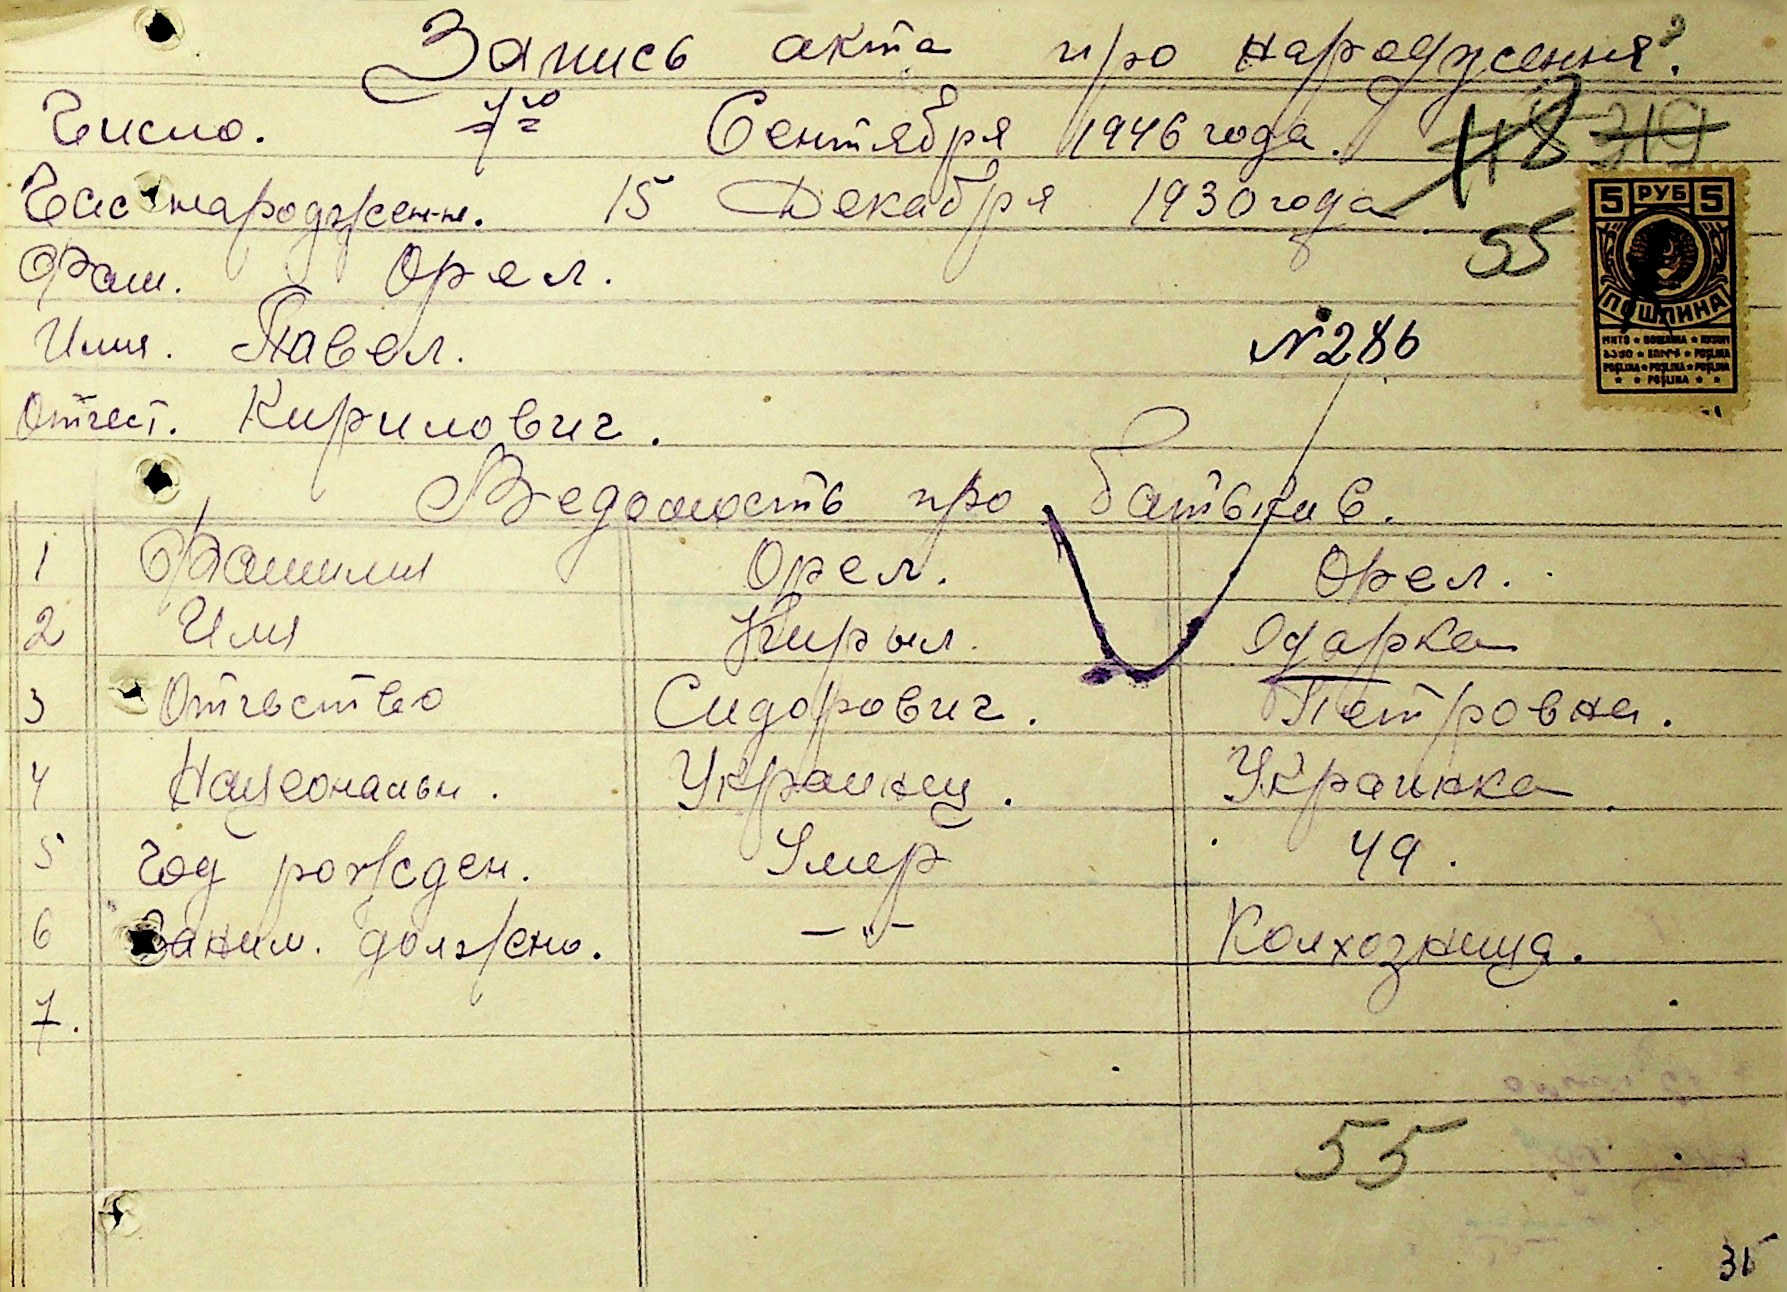 Запись акта про народження.
Число. 7го Сентября 1946 года. 118 319
Час народженн. 15 Декабря 1930 года
55
5 РУБ 5
ПОШЛИНА
Фам. Орел.
Имя. Павел.
N 286
Отчест. Кирилович.
Ведомость про батькив.
1 Фамилия Орел. Орел.
2 Имя Кирыл. Одарка
3 Отчество Сидорович. Петровна.
4 Нацеональн. Украинец. Украинка
5 Год рожден. Умер 49.
6 Заним. должено. —„— Колхозница.
7.
55
35